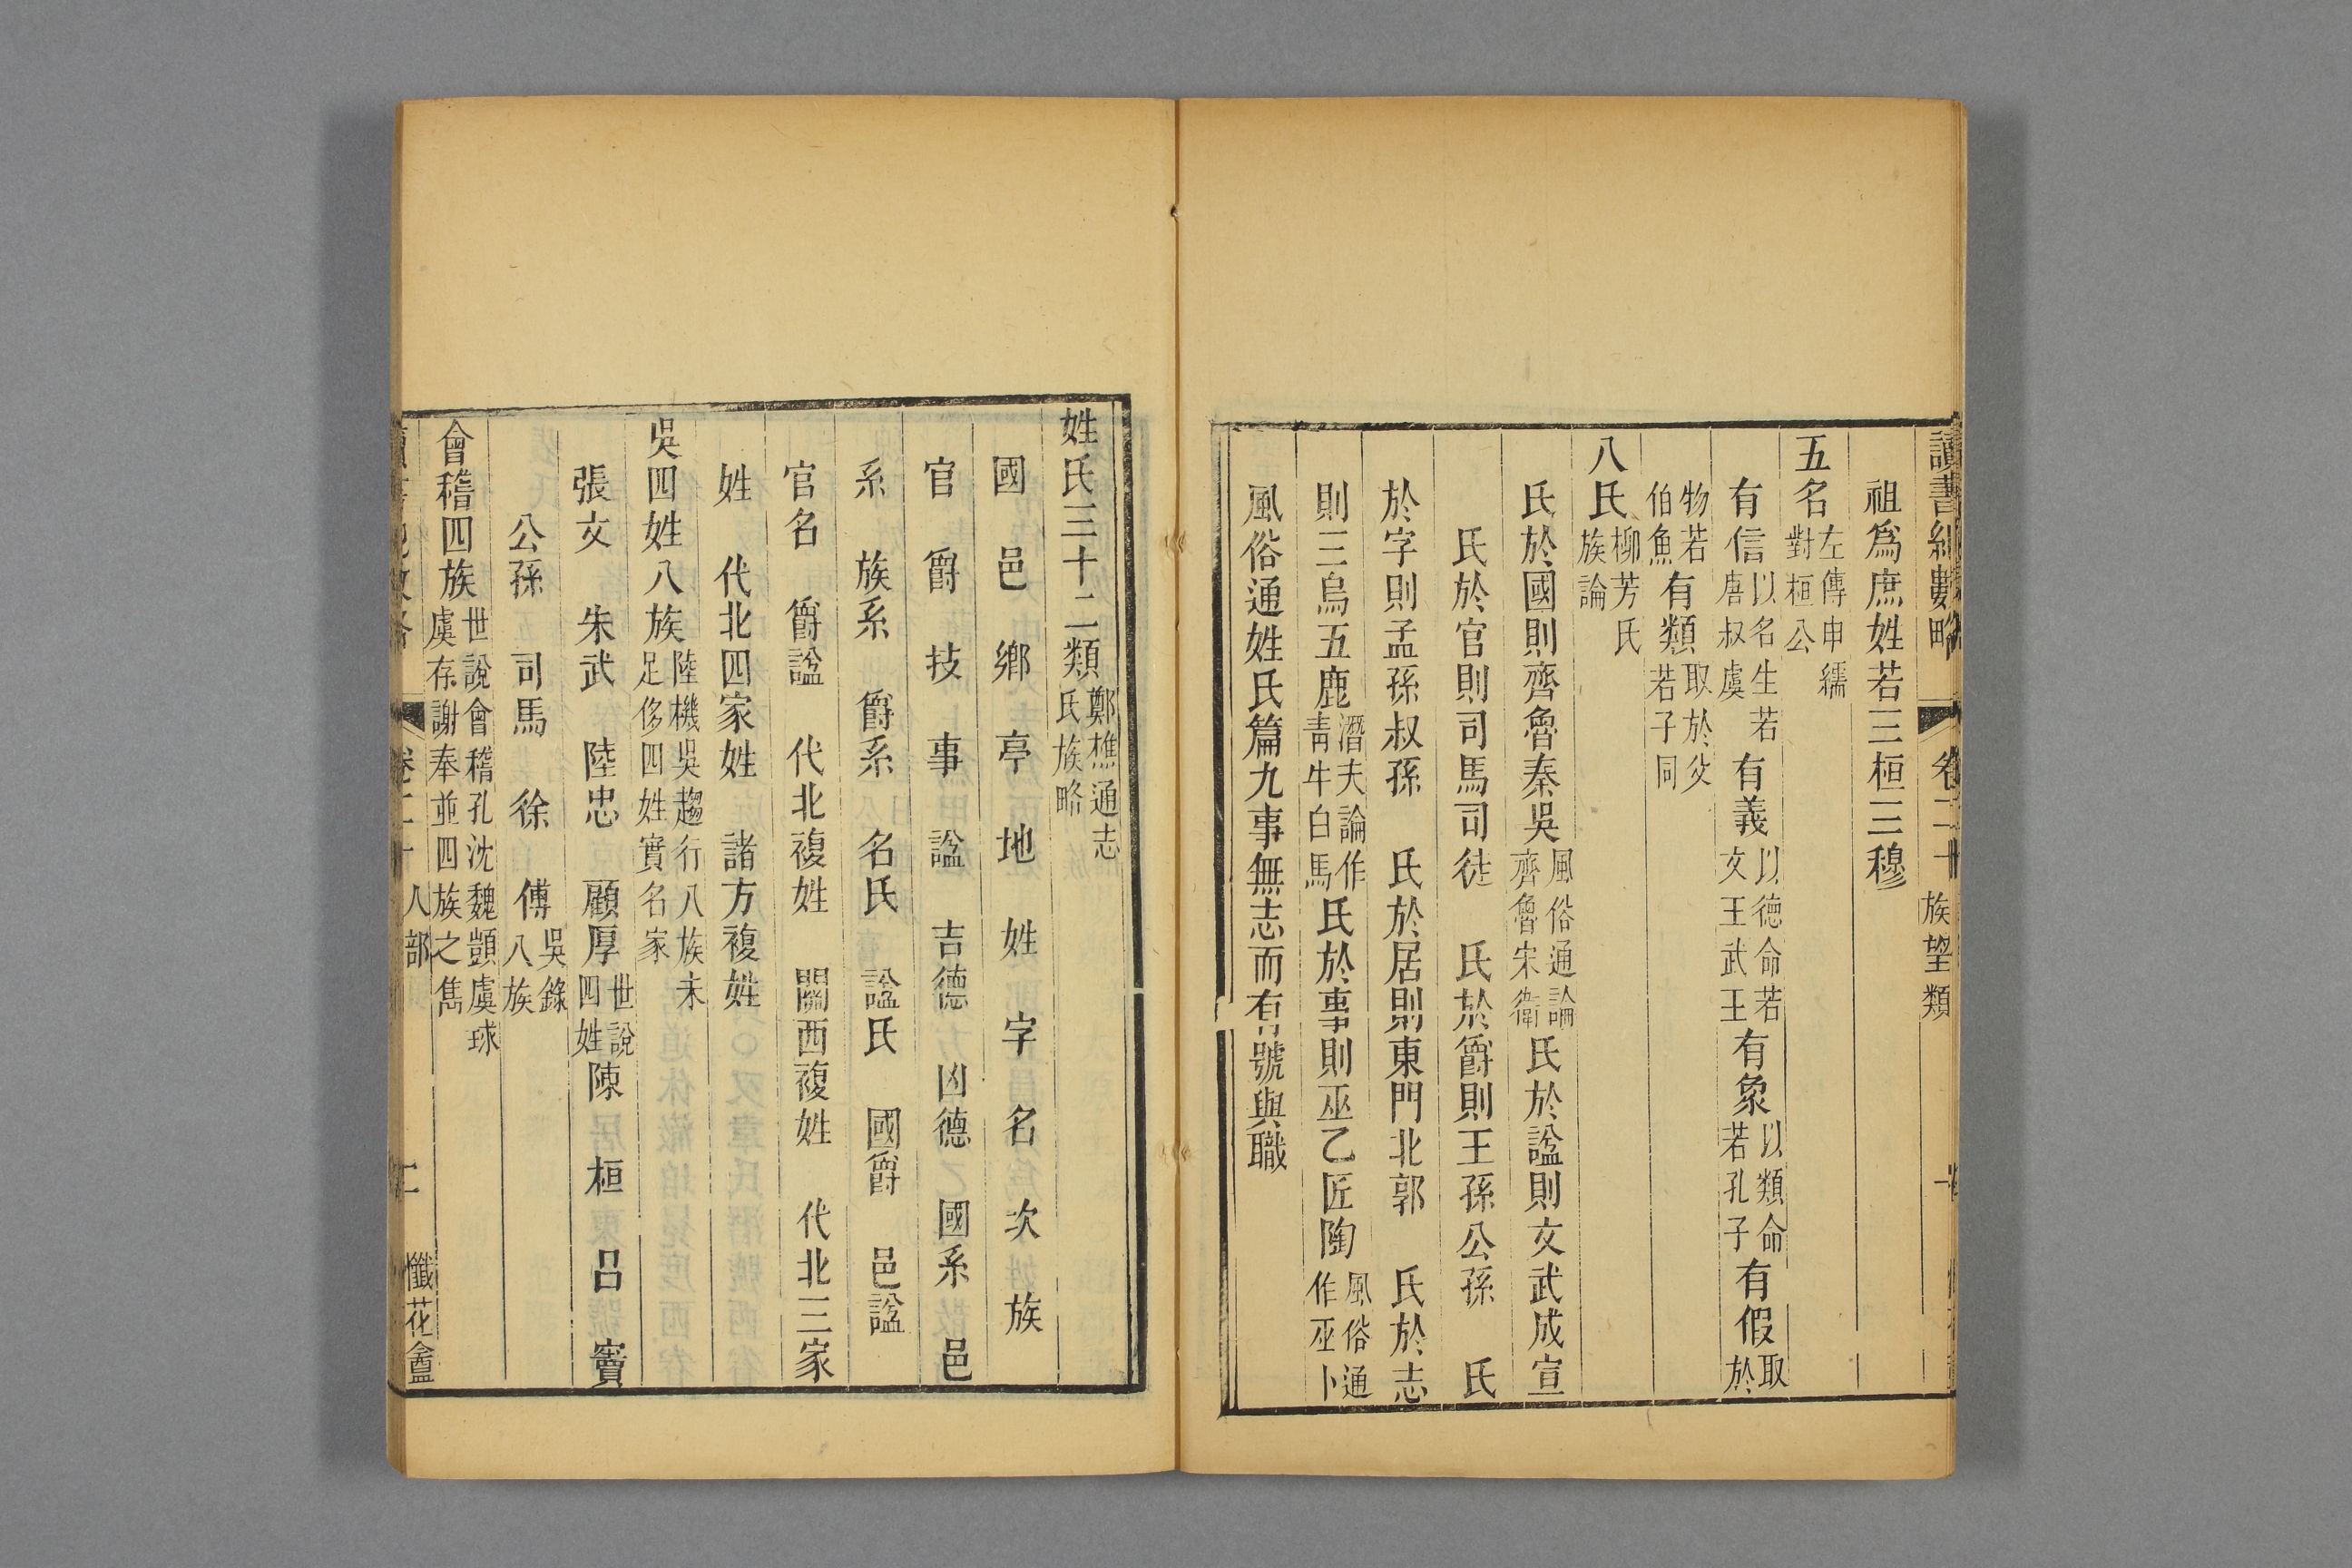 讀書紀數略 卷二十 族望類
祖爲庶姓若三桓三穆
五名左傳申繻對桓公
有信以名生若唐叔虞有義以德命若文王武王有象以類命若孔子有假取於
物若伯魚有類取於父若子同
八氏柳芳氏族論
氏於國則齊魯秦吳風俗通論齊魯宋衞氏於諡則文武成宣
氏於官則司馬司徒 氏於爵則王孫公孫 氏
於字則孟孫叔孫 氏於居則東門北郭 氏於志
則三烏五鹿潛夫論作青牛白馬氏於事則巫乙匠陶風俗通作巫卜
風俗通姓氏篇九事無志而有號與職
姓氏三十二類鄭樵通志氏族略
國 邑 鄉 亭 地 姓 字 名 次 族
官 爵 技 事 諡 吉德 凶德 國系 邑
系 族系 爵系 名氏 諡氏 國爵 邑諡
官名 爵諡 代北複姓 關西複姓 代北三家
姓 代北四家姓 諸方複姓
吳四姓八族陸機吳趨行八族未足侈四姓實名家
張文 朱武 陸忠 顧厚世說四姓陳 桓 呂 竇
公孫 司馬 徐 傅吳錄八族
會稽四族世說會稽孔沈魏顗虞球虞存謝奉並四族之雋
卷二十 人部 二 懺花盦